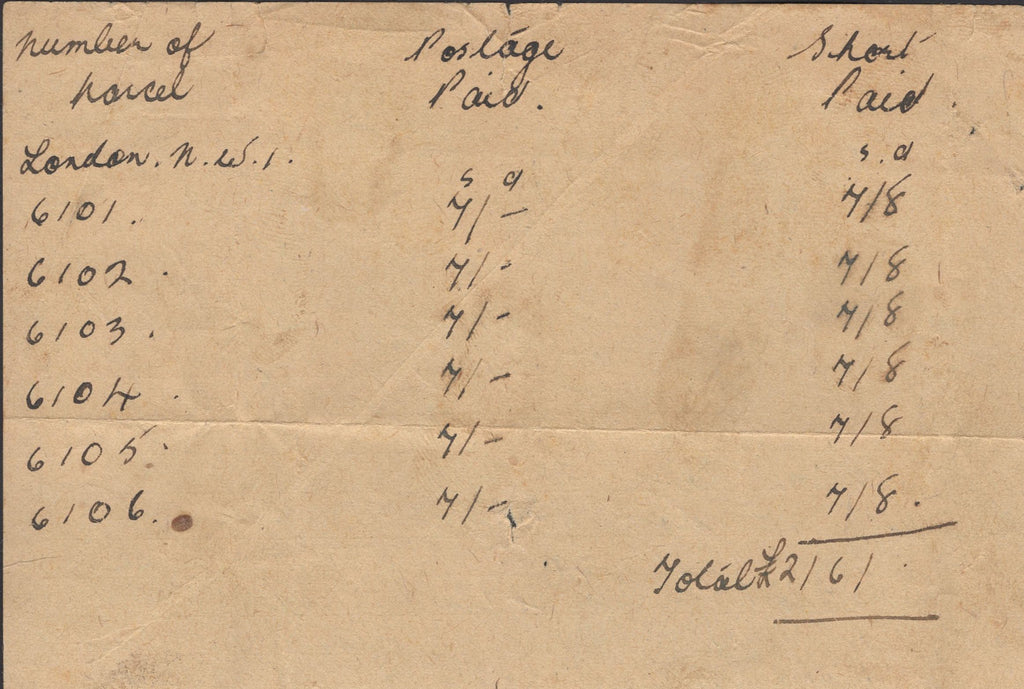 Number of Postage Short
parcel Paid. Paid.
London. N.W.1. s d s.d
6101. 7/- 7/8
6102. 7/- 7/8
6103. 7/- 7/8
6104. 7/- 7/8
6105. 7/- 7/8
6106. 7/- 7/8.
Total £2/6/